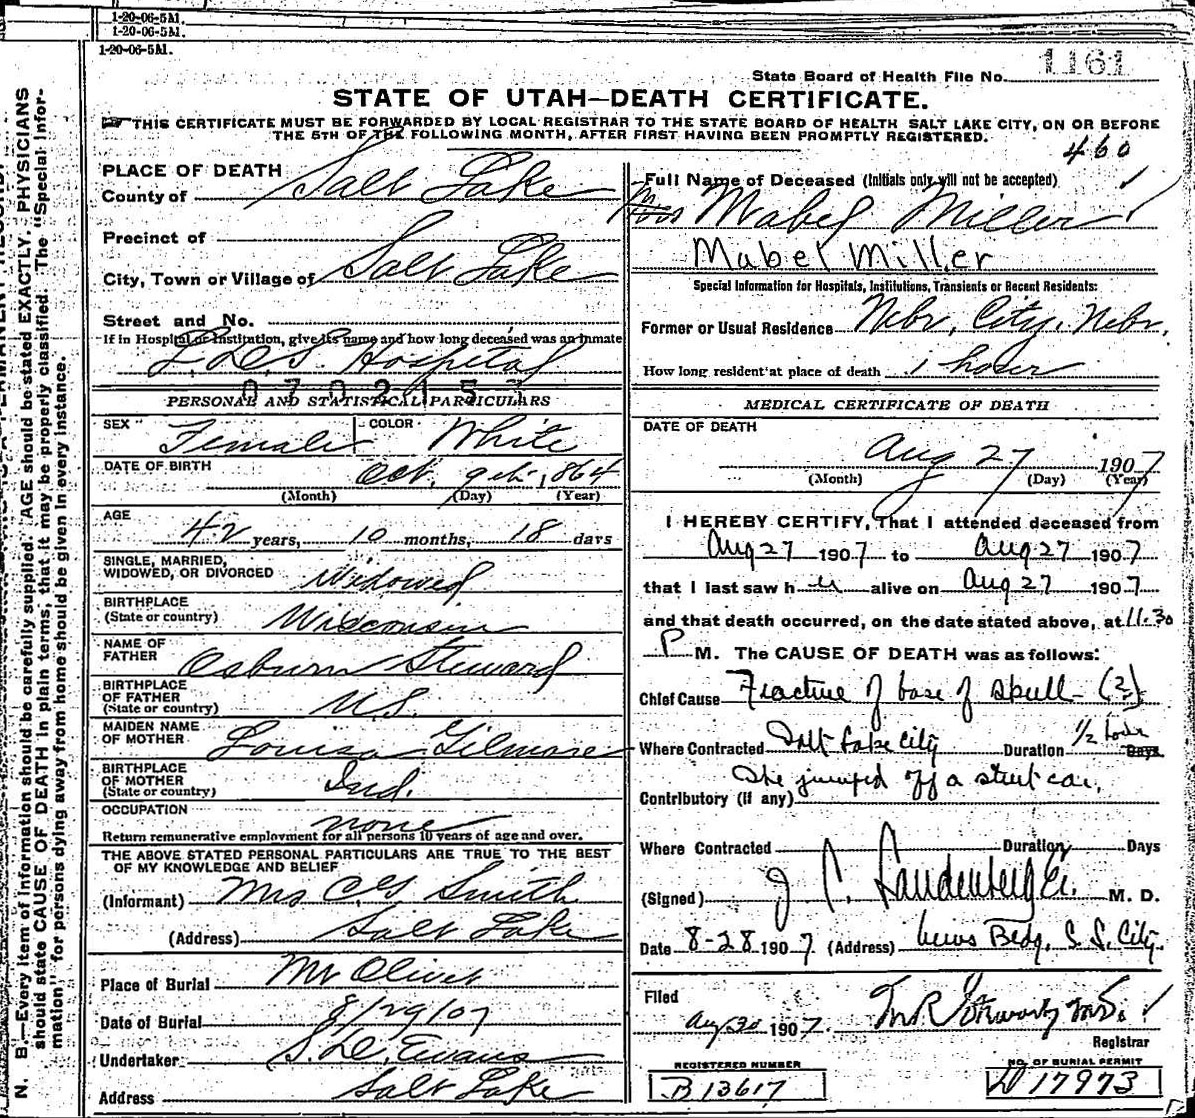 1-20-06-5M.
1-20-06-5M.
1-20-06-5M.
State Board of Health File No. 1161
STATE OF UTAH—DEATH CERTIFICATE.
THIS CERTIFICATE MUST BE FORWARDED BY LOCAL REGISTRAR TO THE STATE BOARD OF HEALTH SALT LAKE CITY, ON OR BEFORE
THE 5TH OF THE FOLLOWING MONTH, AFTER FIRST HAVING BEEN PROMPTLY REGISTERED.
460
PLACE OF DEATH
County of Salt Lake
Precinct of
City, Town or Village of Salt Lake
Street and No.
If in Hospital or Institution, give its name and how long deceased was an inmate
L.D.S. Hospital
0702157
PERSONAL AND STATISTICAL PARTICULARS
SEX Female COLOR White
DATE OF BIRTH Oct. 9th, 1864
(Month) (Day) (Year)
AGE
42 years, 10 months, 18 days
SINGLE, MARRIED,
WIDOWED, OR DIVORCED Widowed
BIRTHPLACE
(State or country) Wisconsin
NAME OF
FATHER Osburn Steward
BIRTHPLACE
OF FATHER
(State or country) U.S.
MAIDEN NAME
OF MOTHER Louisa Gilmore
BIRTHPLACE
OF MOTHER
(State or country) Ind.
OCCUPATION none
Return remunerative employment for all persons 10 years of age and over.
THE ABOVE STATED PERSONAL PARTICULARS ARE TRUE TO THE BEST
OF MY KNOWLEDGE AND BELIEF
(Informant) Mrs C.G. Smith
(Address) Salt Lake
Place of Burial Mt Olivet
Date of Burial 8/29/07
Undertaker S.D. Evans
Address Salt Lake
Full Name of Deceased (Initials only will not be accepted)
Mabel Miller
Mabel Miller
Special Information for Hospitals, Institutions, Transients or Recent Residents:
Former or Usual Residence Nebr, City, Nebr.
How long resident at place of death 1 hour
MEDICAL CERTIFICATE OF DEATH
DATE OF DEATH
Aug 27 1907
(Month) (Day) (Year)
I HEREBY CERTIFY, That I attended deceased from
Aug 27 1907 to Aug 27 1907
that I last saw h er alive on Aug 27 1907
and that death occurred, on the date stated above, at 11.30
P M. The CAUSE OF DEATH was as follows:
Chief Cause Fracture of base of skull - (?)
Where Contracted Salt Lake City Duration 1/2 hour Days
She jumped off a street car.
Contributory (if any)
Where Contracted Duration Days
(Signed) J C. Landenberger. M. D.
Date 8-28 1907. (Address) News Bldg, S. L. City.
Filed
Aug 30 1907. M.D.
Registrar
REGISTERED NUMBER
B 13617
NO. OF BURIAL PERMIT
D 17973
N. B.—Every item of information should be carefully supplied. AGE should be stated EXACTLY. PHYSICIANS
should state CAUSE OF DEATH in plain terms, that it may be properly classified. The "Special Infor-
mation" for persons dying away from home should be given in every instance.